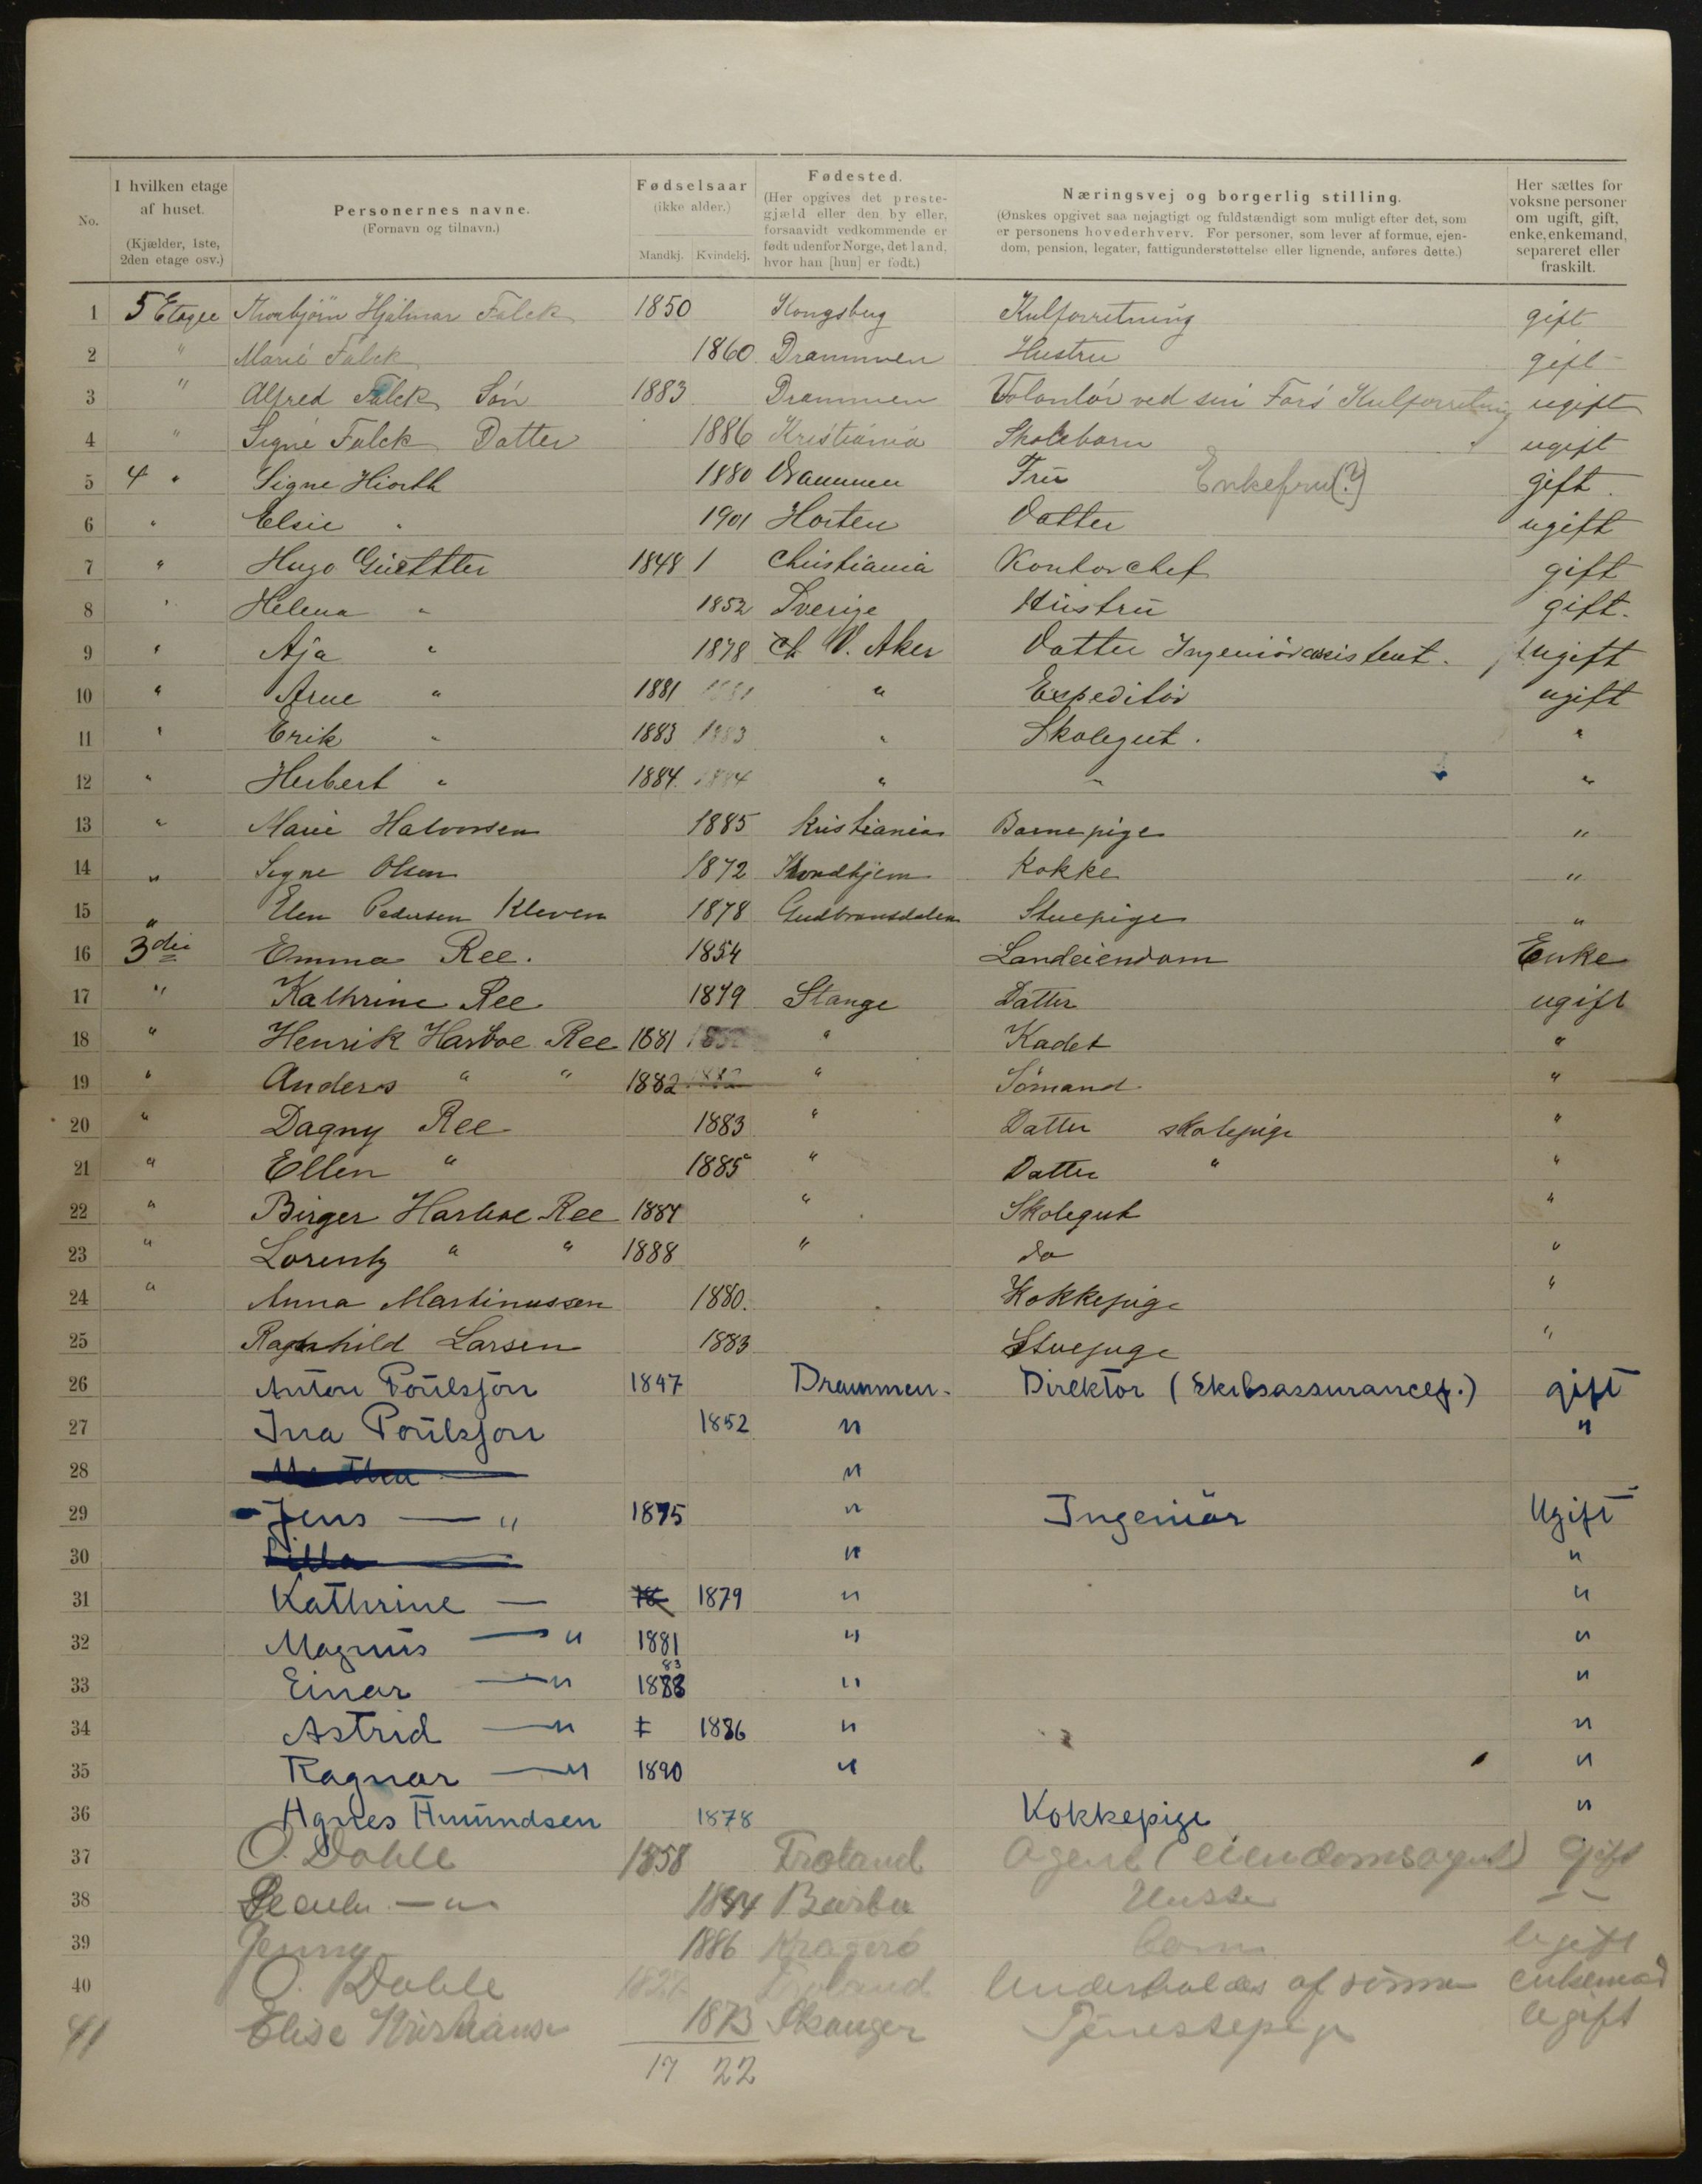 No. I hvilken etage af huset. (Kjælder, 1ste, 2den etage osv.) Personernes navne. (Fornavn og tilnavn.) Fødselsaar (ikke alder.) Mandkj. Kvindekj. Fødested. (Her opgives det prestegjæld eller den by eller, forsaavidt vedkommende er født udenfor Norge, det land, hvor han [hun] er født.) Næringsvej og borgerlig stilling. (Ønskes opgivet saa nøjagtigt og fuldstændigt som muligt efter det, som er personens hovederhverv. For personer, som lever af formue, ejendom, pension, legater, fattigunderstøttelse eller lignende, anføres dette.) Her sættes for voksne personer om ugift, gift, enke, enkemand, separeret eller fraskilt.
1 5 Etage Thorbjörn Hjalmar Falck 1850 Kongsberg Kulforretning gift
2 " Marie Falck 1860. Drammen Hustru gift
3 " Alfred Falck Søn 1883 Drammen Volontör ved sin Fars Kulforretning ugift
4 " Signe Falck Datter 1886 Kristiania Skolebarn ugift
5 4 " Signe Hiorth 1880 Drammen Fru Enkefru(?) gift.
6 " Elsie " 1901 Horten Datter ugift
7 " Hugo 1848 1 Christiania Kontorchef gift
8 " Helena " 1852 Sverige Hustru gift.
9 " Aja " 1878 Ch V. Aker Datter Ingeniörassistent. ugift
10 " Arne " 1881 1881 " Expeditör ugift
11 " Erik " 1883 1883 " Skolegut. "
12 " Herbert " 1884. 1884 " " "
13 " Marie Halvorsen 1885 Kristiania Barnepige "
14 " Signe Olsen 1872 Throndhjem Kokke "
15 " Elen Pedersen Kleven 1878 Gudbransdalen Stuepige "
16 3die Emma Ree. 1854 Landeiendom Enke
17 " Kathrine Ree 1879 Stange Datter ugift
18 " Henrik Harboe Ree 1881 " Kadet "
19 " Anders " " 1882 1882 " Sömand "
20 " Dagny Ree 1883 " Datter skolepige "
21 " Ellen " 1885 " Datter " "
22 " Birger Harboe Ree 1887 " Skolegut "
23 " Lorentz " " 1888 " do "
24 " Anna Martinussen 1880. Kokkepige "
25 Ragnhild Larsen 1883 Stuepige "
26 Anton Poulsson 1847 Drammen. Direktør (Skibsassurancef.) gift
27 Ina Poulsson 1852 " "
28 Martha — "
29 Jens — " 1875 " Ingeniør Ugift
30 Lilla — " "
31 Kathrine — 18 1879 " "
32 Magnus — " 1881 " "
33 Einar — " 1883 83 " "
34 Astrid — " 1886 " "
35 Ragnar — " 1890 " "
36 Agnes Amundsen 1878 Kokkepige "
37 O. Dahle 1858 Froland Agent (eiendomsagent) gift
38 — " Barbu —
39 Jenny 1886 Kragerö barn ugift
40 O. Dahle Froland Underholdes af sönnen enkemand
41 Elise Kristianse 1873 Tjenestepige ugift
17 22